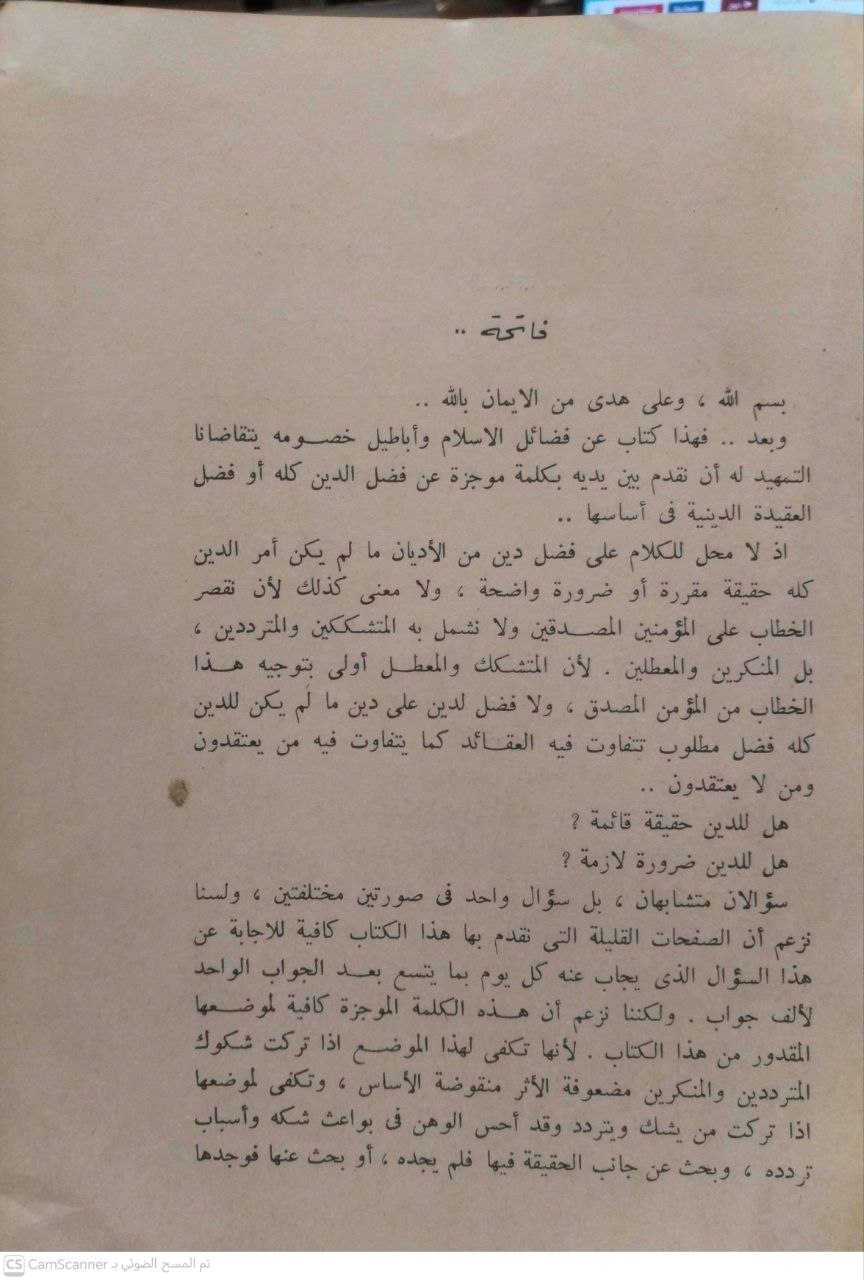 فاتحة ..
بسم الله ، وعلى هدى من الايمان بالله ..
وبعد .. فهذا كتاب عن فضائل الاسلام وأباطيل خصومه يتقاضانا
التمهيد له أن نقدم بين يديه بكلمة موجزة عن فضل الدين كله أو فضل
العقيدة الدينية فى أساسها ..
اذ لا محل للكلام على فضل دين من الأديان ما لم يكن أمر الدين
كله حقيقة مقررة أو ضرورة واضحة ، ولا معنى كذلك لأن نقصر
الخطاب على المؤمنين المصدقين ولا نشمل به المتشككين والمترددين ،
بل المنكرين والمعطلين . لأن المتشكك والمعطل أولى بتوجيه هذا
الخطاب من المؤمن المصدق ، ولا فضل لدين على دين ما لم يكن للدين
كله فضل مطلوب تتفاوت فيه العقائد كما يتفاوت فيه من يعتقدون
ومن لا يعتقدون ..
هل للدين حقيقة قائمة ؟
هل للدين ضرورة لازمة ؟
سؤالان متشابهان ، بل سؤال واحد فى صورتين مختلفتين ، ولسنا
نزعم أن الصفحات القليلة التى نقدم بها هذا الكتاب كافية للاجابة عن
هذا السؤال الذى يجاب عنه كل يوم بما يتسع بعد الجواب الواحد
لألف جواب . ولكننا نزعم أن هذه الكلمة الموجزة كافية لموضعها
المقدور من هذا الكتاب . لأنها تكفى لهذا الموضع اذا تركت شكوك
المترددين والمنكرين مضعوفة الأثر منقوضة الأساس ، وتكفى لموضعها
اذا تركت من يشك ويتردد وقد أحس الوهن فى بواعث شكه وأسباب
تردده ، وبحث عن جانب الحقيقة فيها فلم يجده ، أو بحث عنها فوجدها
CS CamScanner تم المسح الضوئي بـ